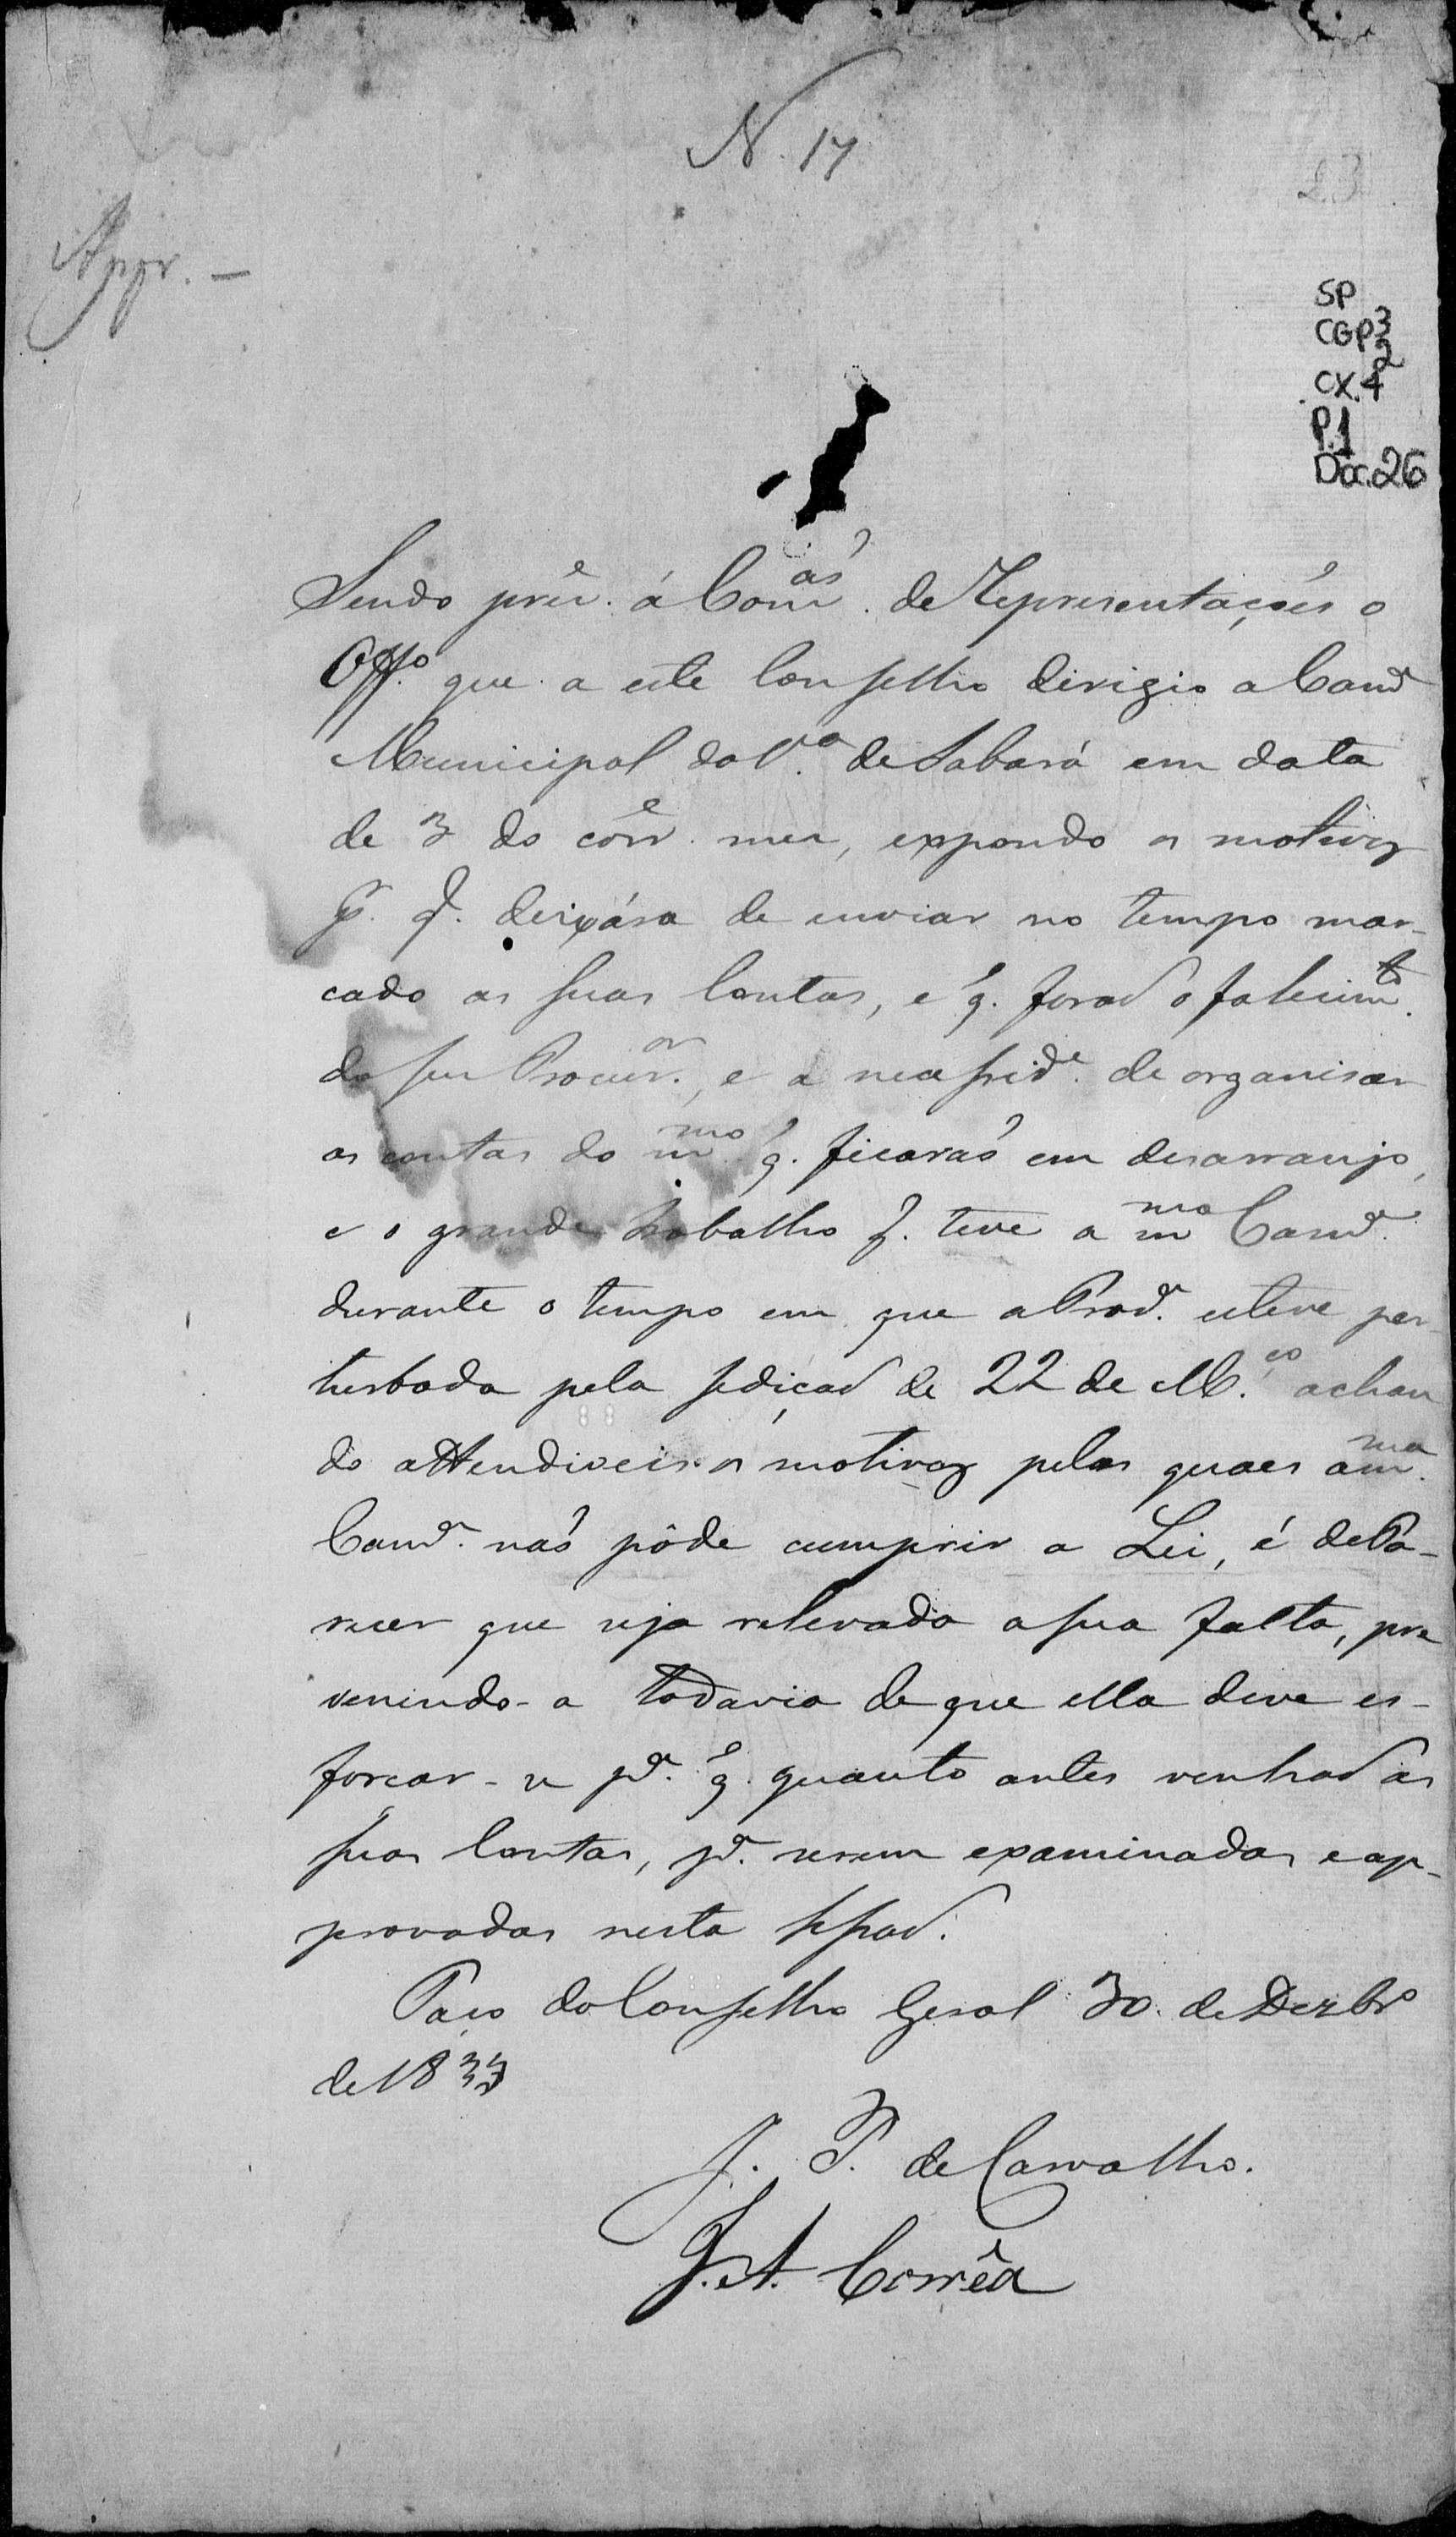 N. 17
23
Appr. —
SP
CGP3
2
CX.4
P.1
Doc.26
Sendo prêe. á Comão. de Reprezentações o
Offo. que a este Conselho dirigio a Camª
Municipal da Vª. de Sabará em data
de 3 do côrre. mez, expondo os motivos
pr. q. deixára de enviar no tempo mar-
cado as suas Contas, e q. forão o falecimto.
do seu Procuror., e a necesside. de organisar
as contas do mmo q. ficarão em desarranjo,
e o grande trabalho q. teve a mma Camª.
durante o tempo em que a Provª. esteve per-
turbada pela sedição de 22 de M.ço achan
do attendiveis os motivos pelos quaes a mma.
Camª. não pôde cumprir a Lei, é de Pa-
recer que seja relevada a sua falta, pre
venindo-a todavia de que ella deve es-
forçar-se pª. q. quanto antes venhão as
suas Contas, pª. serem examinadas e ap-
provadas nesta Sessão.
Paço do Conselho Geral 30 de Dezbro
de 1833
J. P. de Carvalho.
J. A. Corrêa